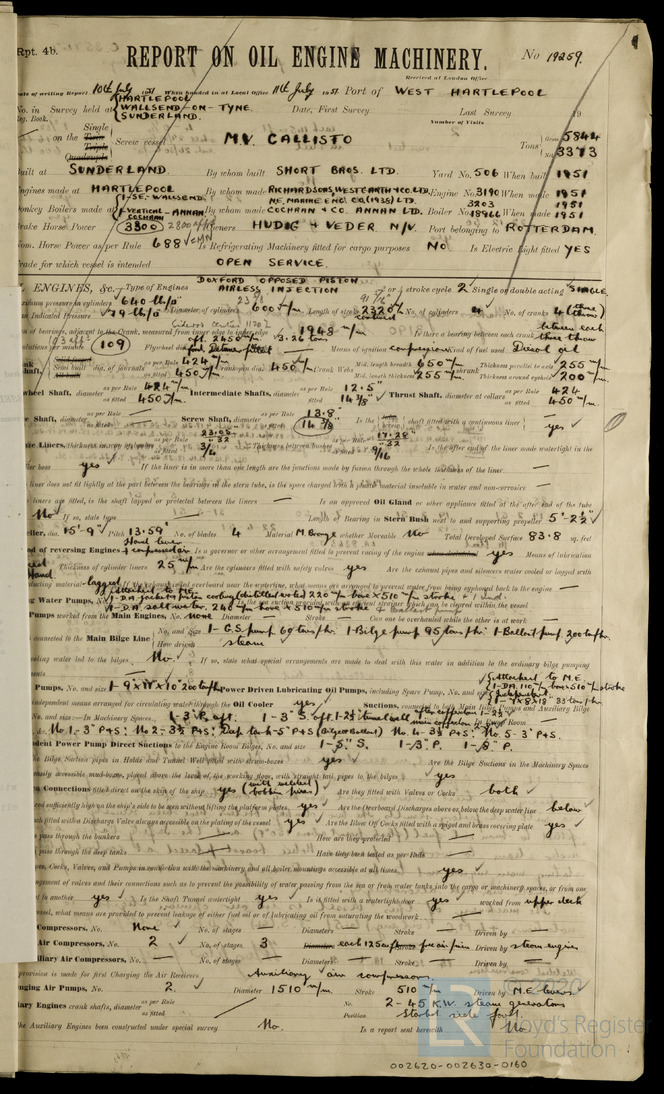 Rpt. 4b.
REPORT ON OIL ENGINE MACHINERY.
No 19259.
Received at London Office
Date of writing Report 10th July 1951 When handed in at Local Office 11th July 1951 Port of WEST HARTLEPOOL
No. in Survey held at HARTLEPOOL WALLSEND-ON-TYNE. SUNDERLAND. Date, First Survey Last Survey 19
Reg. Book. Number of Visits
on the Single Twin Triple Quadruple Screw vessel M.V. CALLISTO Tons Gross 5844 Net 3373
Built at SUNDERLAND By whom built SHORT BROS. LTD. Yard No. 506 When built 1951
Engines made at HARTLEPOOL By whom made RICHARDSONS, WESTGARTH & CO. LTD. Engine No. 3190 When made 1951
Donkey Boilers made at 1-SE-WALLSEND. 1-VERTICAL-ANNAN COCHRAN By whom made N.E. MARINE ENG. CO. (1938) LTD. COCHRAN & CO. ANNAN LTD. Boiler No. 3203 18966 When made 1951 1951
Brake Horse Power 3300 Owners HUDIG & VEDER N/V. Port belonging to ROTTERDAM.
Nom. Horse Power as per Rule 688 Is Refrigerating Machinery fitted for cargo purposes NO Is Electric Light fitted YES
Trade for which vessel is intended OPEN SERVICE.
ENGINES, &c. Type of Engines DOXFORD OPPOSED PISTON AIRLESS INJECTION 2 or 4 stroke cycle 2 Single or double acting SINGLE.
Maximum pressure in cylinders 640 lb/o" Diameter of cylinders 600 m/m. Length of stroke 2320 m/m combined No. of cylinders 4 No. of cranks 4 (three throws)
Mean Indicated Pressure 79 lb/o"
1948 m/m Is there a bearing between each crank between each three throw
Revolutions per minute 109 Flywheel dia. 2450 m/m Weight 3.26 tons Means of ignition compression Kind of fuel used Diesel oil
as per Rule 424 m/m as fitted 450 m/m. Crank pin dia. 450 m/m Mid. length breadth 650 m/m Mid. length thickness 255 m/m. Thickness parallel to axis 255 m/m Thickness around eyehole 200 m/m.
Flywheel Shaft, diameter as per Rule 424 m/m as fitted 450 m/m. Intermediate Shafts, diameter as per Rule 12.5" as fitted 14 3/8" Thrust Shaft, diameter at collars as per Rule 424 as fitted 450 m/m.
Tube Shaft, diameter as per Rule — as fitted — Screw Shaft, diameter as per Rule 13.8" as fitted 14 7/8" Is the shaft fitted with a continuous liner yes
Bronze Liners, thickness in way of bushes as per Rule 23.08"/32 as fitted 3/4 Thickness between bushes as per Rule 17.28"/32 as fitted 9/16 Is the after end of the liner made watertight in the
propeller boss yes If the liner is in more than one length are the junctions made by fusion through the whole thickness of the liner —
If the liner does not fit tightly at the part between the bearings in the stern tube, is the space charged with a plastic material insoluble in water and non-corrosive —
If two liners are fitted, is the shaft lapped or protected between the liners — Is an approved Oil Gland or other appliance fitted at the after end of the tube
No If so, state type Length of Bearing in Stern Bush next to and supporting propeller 5'-2½"
Propeller, dia. 15'-9" Pitch 13.59' No. of blades 4 Material M. Bronze whether Moveable No Total Developed Surface 83.8 sq. feet
Method of reversing Engines Hand lever & compressed air Is a governor or other arrangement fitted to prevent racing of the engine yes Means of lubrication
forced Thickness of cylinder liners 25 m/m Are the cylinders fitted with safety valves yes Are the exhaust pipes and silencers water cooled or lagged with
non-conducting material lagged If the exhaust is led overboard near the waterline, what means are arranged to prevent water being syphoned back to the engine —
Pumps worked from the Main Engines, No. None Diameter — Stroke — Can one be overhauled while the other is at work —
connected to the Main Bilge Line No. and Size 1-G.S. pump 60 tons/hr. 1-Bilge pump 95 tons/hr. 1-Ballast pump 200 tons/hr.
How driven steam
cooling water led to the bilges No. If so, state what special arrangements are made to deal with this water in addition to the ordinary bilge pumping
Power Driven Lubricating Oil Pumps, including Spare Pump, No. and size
independent means arranged for circulating water through the Oil Cooler yes Suctions, connected to both Main Bilge Pumps and Auxiliary
No. and size:—In Machinery Spaces 1-3" P. aft. 1-3" S. aft. 1-2½" tunnel well
No. 1-3" P&S; No. 2-3½" P&S; Deep tank-5" P&S (Bilge or Ballast) No. 4-3½" P&S; No. 5-3" P&S.
Independent Power Pump Direct Suctions to the Engine Room Bilges, No. and size 1-5" S. 1-3" P.
the Bilge Suction pipes in Holds and Tunnel Well fitted with strum-boxes yes Are the Bilge Suctions in the Machinery Spaces
easily accessible mud-boxes, placed above the level of the working floor, with straight tail pipes to the bilges yes
Connections fitted direct on the skin of the ship yes Are they fitted with Valves or Cocks both
fixed sufficiently high on the ship's side to be seen without lifting the platform plates yes Are the Overboard Discharges above or below the deep water line below
each fitted with a Discharge Valve always accessible on the plating of the vessel yes Are the Blow Off Cocks fitted with a spigot and brass covering plate yes
pass through the bunkers — How are they protected —
pass through the deep tanks — Have they been tested as per Rule —
Pipes, Cocks, Valves, and Pumps in connection with the machinery and all boiler mountings accessible at all times yes
arrangement of valves and their connections such as to prevent the possibility of water passing from the sea or from water tanks into the cargo or machinery spaces, or from one
to another yes Is the Shaft Tunnel watertight yes Is it fitted with a watertight door yes worked from upper deck
vessel, what means are provided to prevent leakage of either fuel oil or of lubricating oil from saturating the woodwork —
Compressors, No. None No. of stages — Diameters — Stroke — Driven by —
Air Compressors, No. 2 No. of stages 3 each 125 cu/ft free air/min Driven by steam engines
Auxiliary Air Compressors, No. — No. of stages — Diameters — Stroke — Driven by —
provision is made for first Charging the Air Receivers Auxiliary air compressors.
Scavenging Air Pumps, No. 2. Diameter 1510 m/m. Stroke 510 m/m. Driven by M.E. levers
Auxiliary Engines crank shafts, diameter as per Rule as fitted No. 2-45 K.W. steam generators
Position Starbd. side
the Auxiliary Engines been constructed under special survey No. Is a report sent herewith No.
© 2020
LR
Lloyd's Register
Foundation
002620-002630-0160